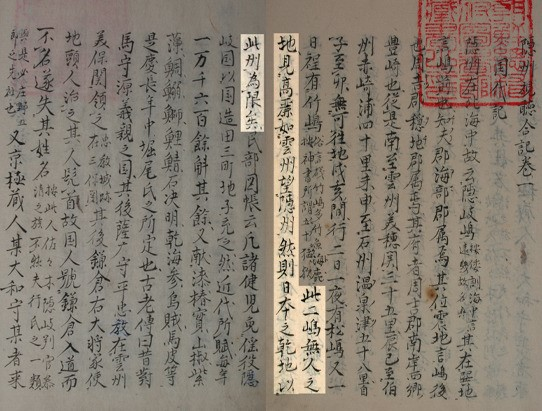 隠州視聴合記巻一
国代記
隠州在北海中故云隠岐嶋 其在巽地
言嶋前也知夫郡海部郡属焉其位震地言嶋後
也周吉郡穏地郡属焉其府者周吉郡南岸西郷
豊崎也従是南至雲州美穂関三十五里辰巳至伯
州赤崎浦四十里未申至石州温泉津五十八里自
子至卯無可往地戍亥間行二日一夜有松嶋又一
日程有竹嶋 此二嶋無人之
地見高麗如雲州望隠州然則日本之乾地以
此州為限矣民部図帳云凡諸健児免徭役隠
岐国以国造田三町地子充之然近代所賦毎年
一万千六百餘斛其餘又献漆椿實山椒紫
鯛鰯鰤鯉鯖石决明乾海参烏賊馬皮等
是慶長年中堀尾氏之所定也古老傳曰昔對
馬守源義親之国其後薩广守平忠教在雲州
美保関領之 其後鎌倉右大将家使
地頭人治之其人髠首故国人號鎌倉入道而
不名遂失其姓名
又京極蔵人某大和守某者来